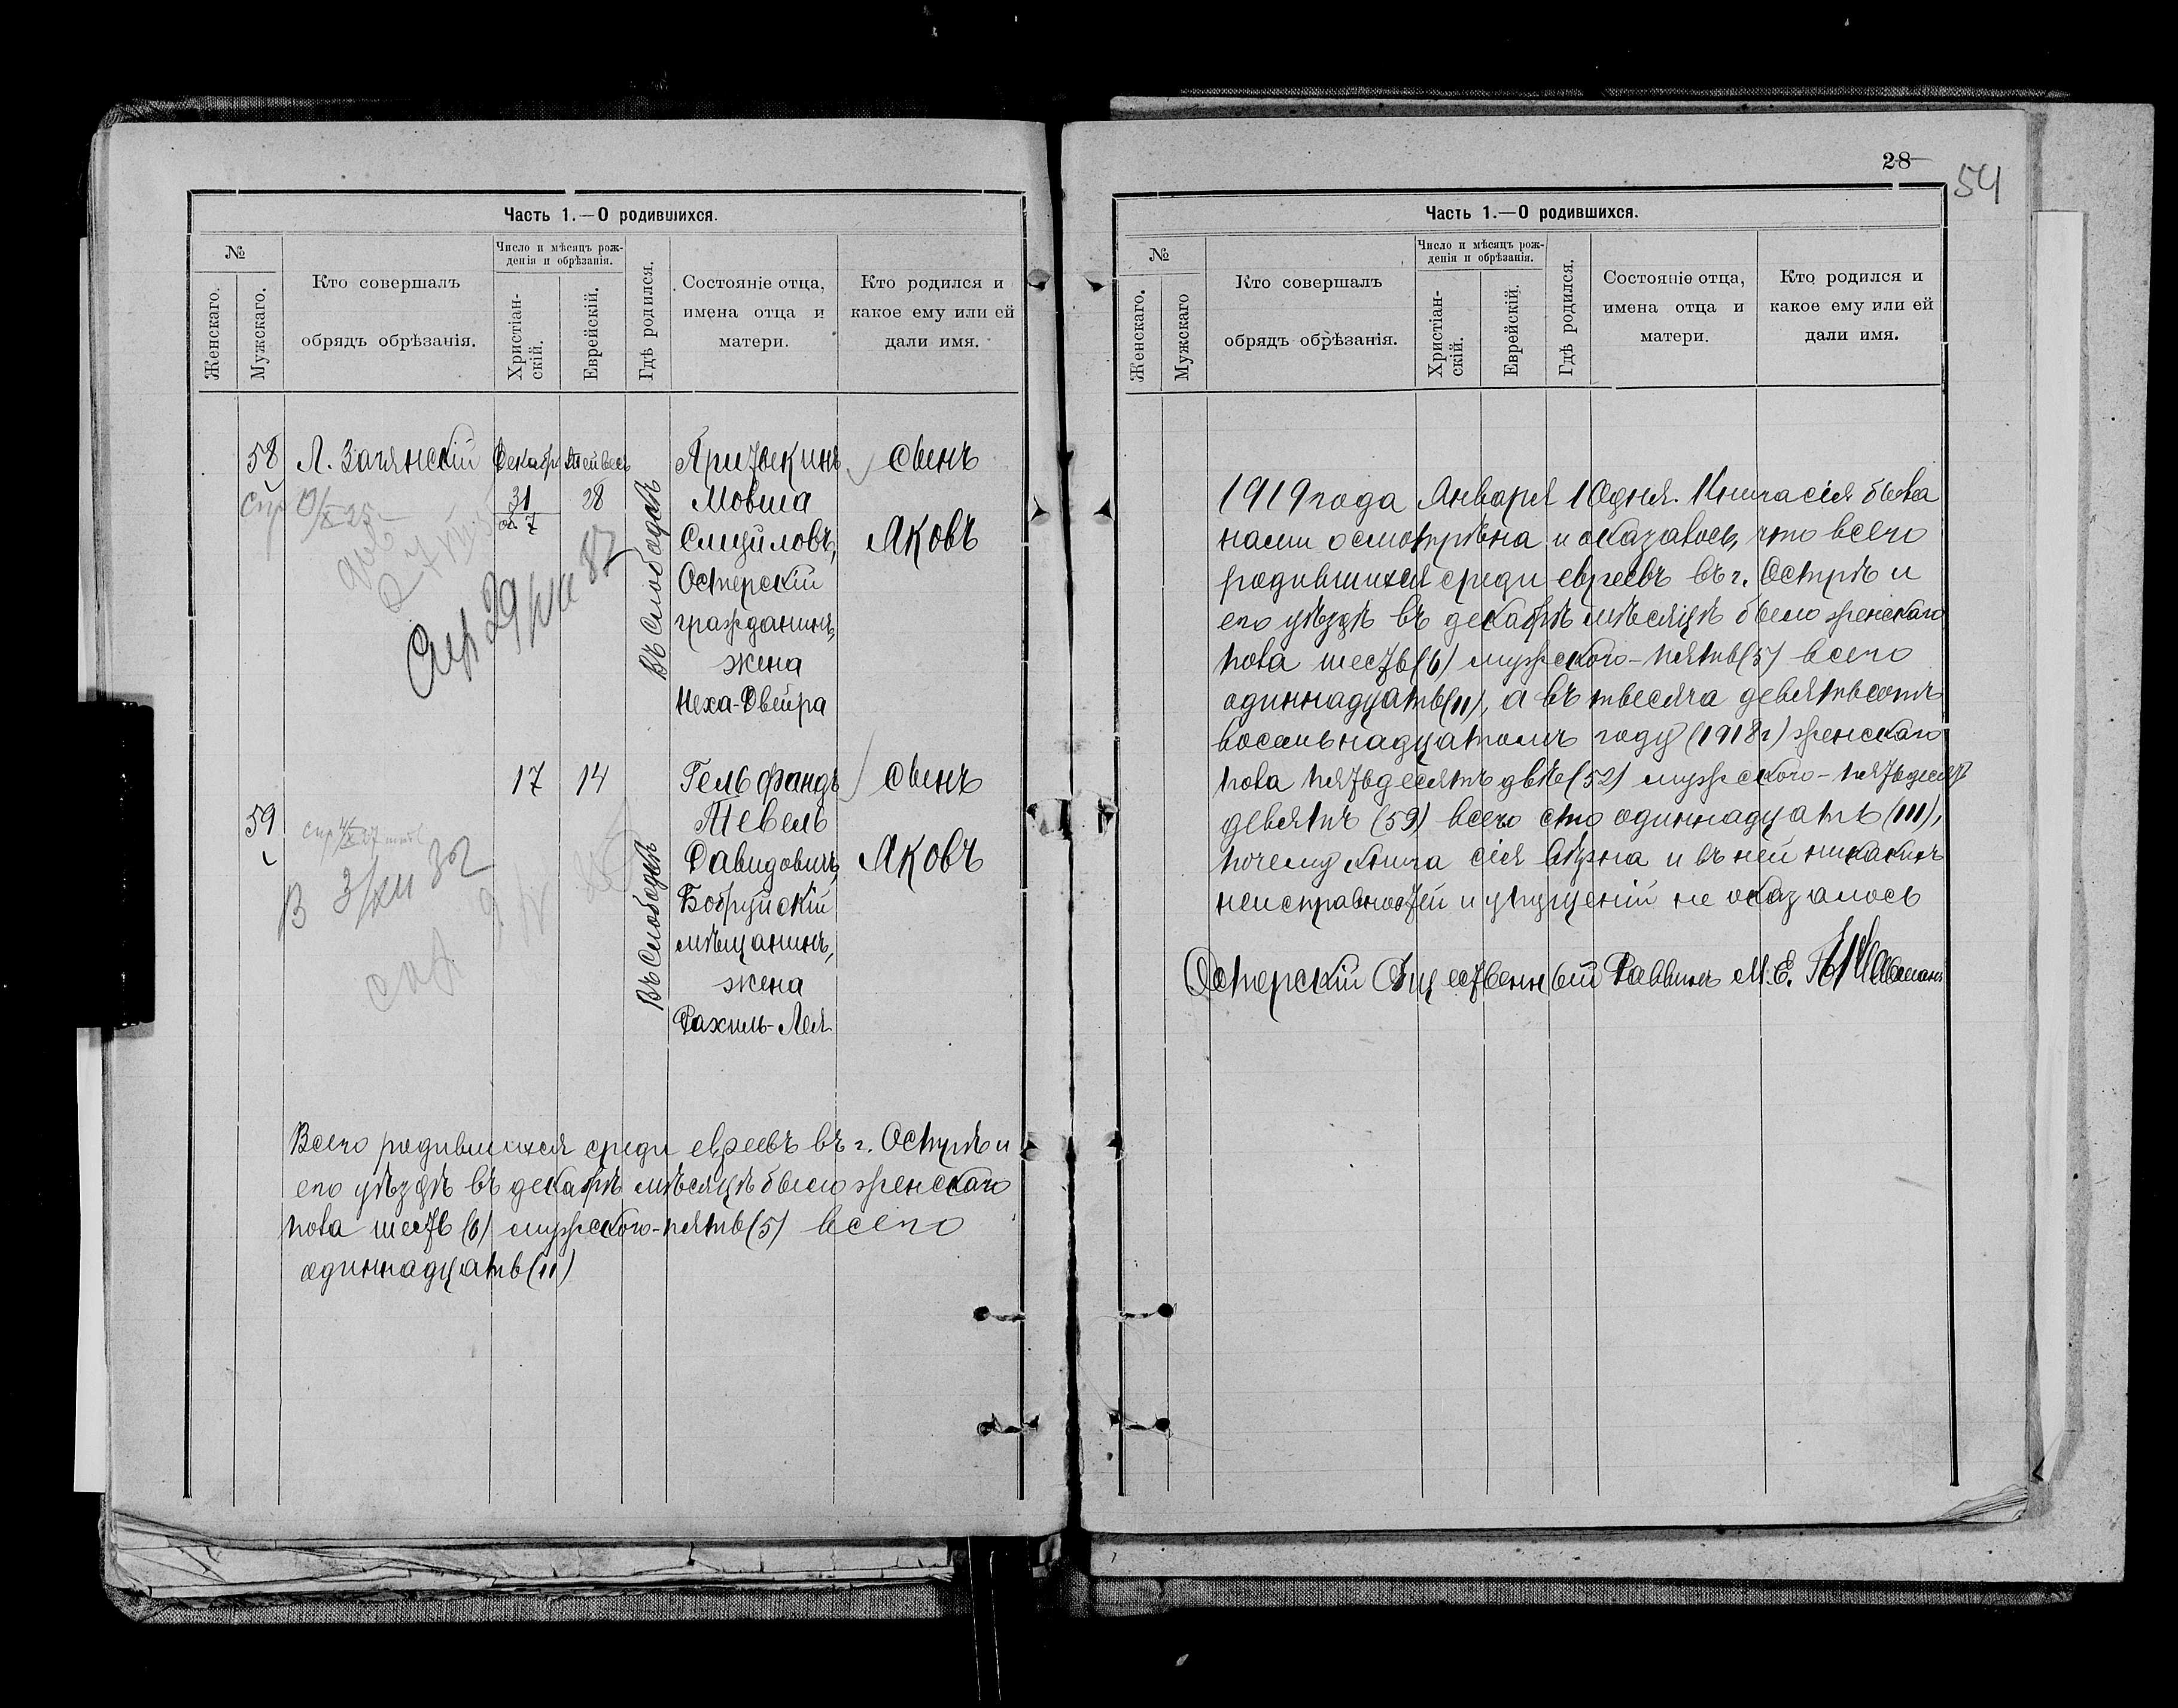 Часть 1.—О родившихся.
№
Женскаго.
Мужскаго.
Кто совершалъ
обрядъ обрѣзанія.
Число и мѣсяцъ рож-
денія и обрѣзанія.
Христіан-
скій.
Еврейскій.
Гдѣ родился.
Состояніе отца,
имена отца и
матери.
Кто родился и
какое ему или ей
дали имя.
58 Л. Зачянскій Декабр Тейвесъ сынъ
31 28 Мовша
об. 7
Смуйловъ, Яковъ
Въ Слободкѣ
Остерскій
гражданинъ,
жена
Неха-Двейра
17 14 Гельфандъ сынъ
59 Тевель
Давидовичъ, Яковъ
Въ Слободкѣ
Бобруйскій
мѣщанинъ,
жена
Рахиль-Лея
Всего родившихся среди евреевъ въ г. Острѣ и
его уѣздѣ въ декабрѣ мѣсяцѣ было женскаго
пола шесть (6) мужского-пять (5) всего
одиннадцать (11)
28
54
Часть 1.—О родившихся.
№
Женскаго.
Мужскаго
Кто совершалъ
обрядъ обрѣзанія.
Число и мѣсяцъ рож-
денія и обрѣзанія.
Христіан-
скій.
Еврейскій.
Гдѣ родился.
Состояніе отца,
имена отца и
матери.
Кто родился и
какое ему или ей
дали имя.
1919 года Января 10 дня. Книга сія была
нами осмотрѣна и оказалось, что всего
родившихся среди евреевъ въ г. Острѣ и
его уѣздѣ въ декабрѣ мѣсяцѣ было женскаго
пола шесть (6) мужского-пять (5) всего
одиннадцать (11), а въ тысяча девятьсотъ
восемьнадцатомъ году (1918 г) женскаго
пола пятьдесятъ двѣ (52) мужского-пятьдесят
девять (59) всего сто одиннадцать (111),
почему книга сія вѣрна и въ ней никакихъ
неисправностей и упущеній не оказалось
Остерскій Общественный Раввинъ М. Е.